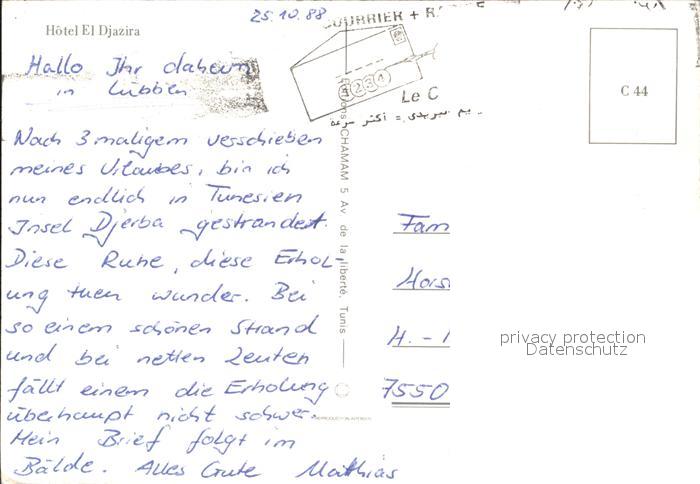 25.10.88
Hôtel El Djazira
COURRIER + R
Hallo Ihr daheim
in Lübben
1234
Le C
C 44
Nach 3 maligem verschieben
meines Urlaubes, bin ich
nun endlich in Tunesien
Insel Djerba gestrandet.
Diese Ruhe, diese Erhol-
ung tuen wunder. Bei
so einem schönen Strand
und bei netten Leuten
fällt einem die Erholung
überhaupt nicht schwer.
Mein Brief folgt im
Bälde. Alles Gute Matthias
CHAMAM 5 Av de la liberté, Tunis
Fam
Hors
H. - 1
7550
privacy protection
Datenschutz